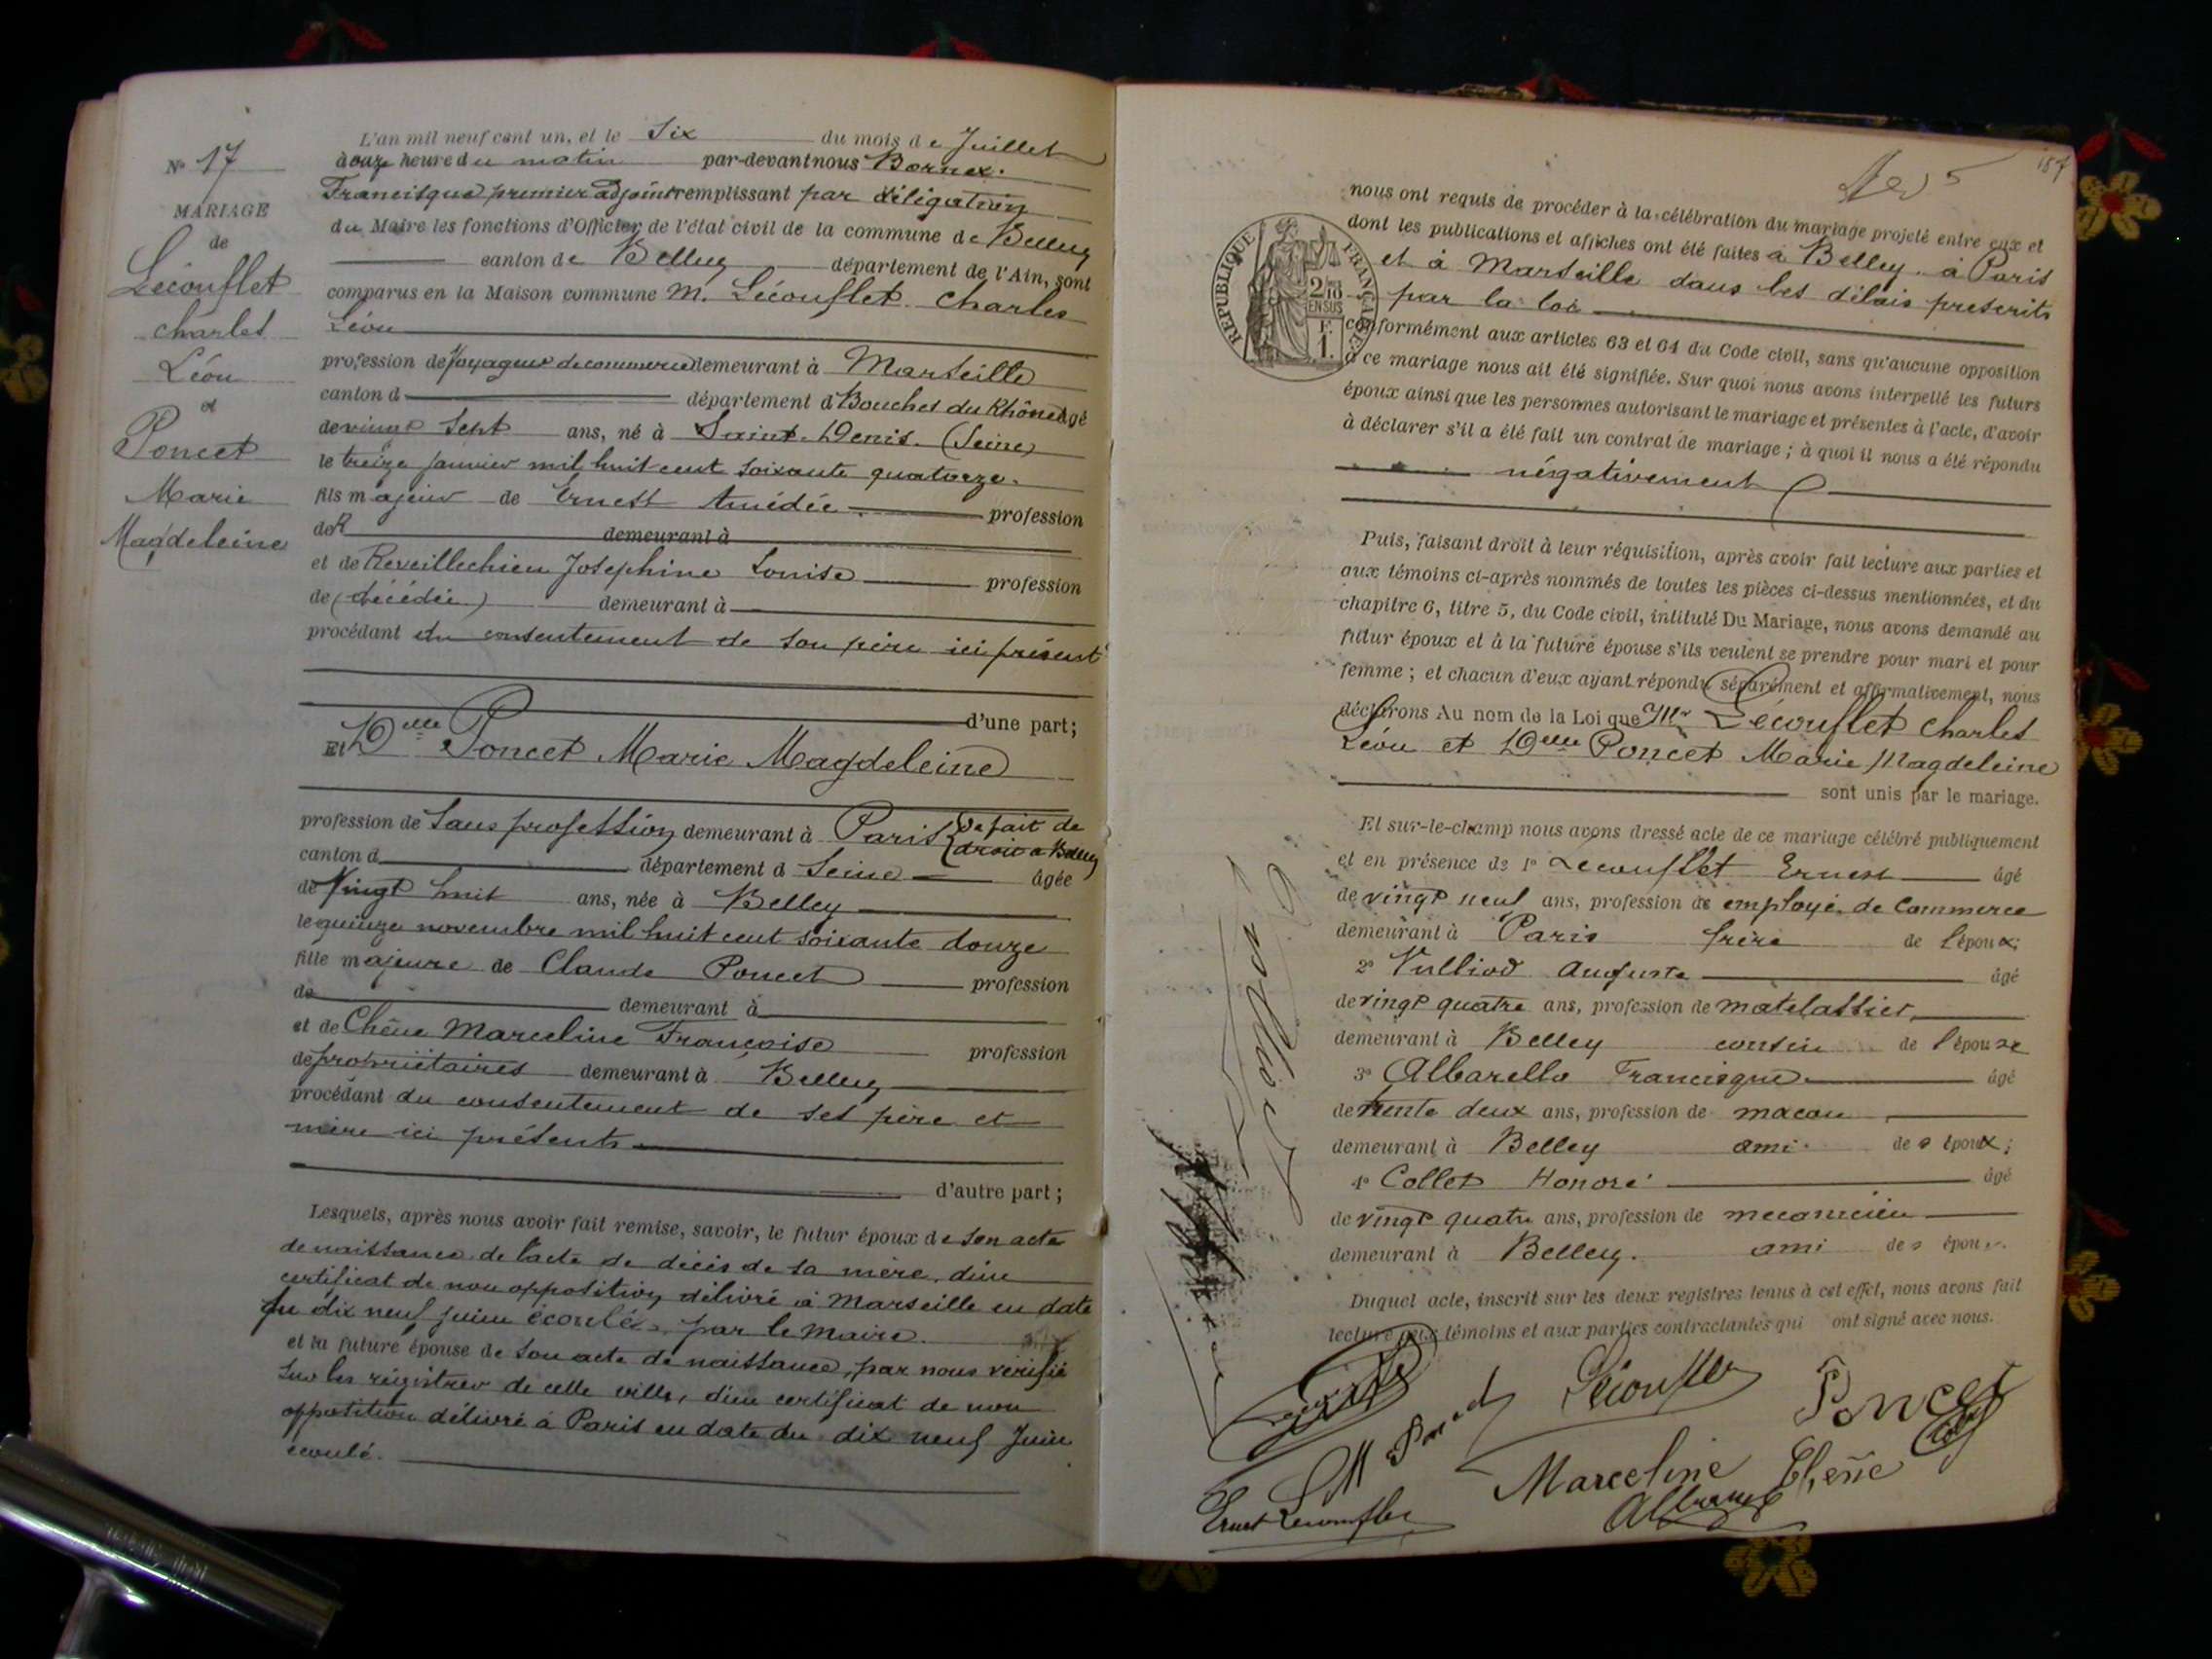 N° 17
MARIAGE
de
Lécouflet
Charles
Léon
et
Poncet
Marie
Magdeleine
L'an mil neuf cent un, et le Six du mois de Juillet
à onze heure du matin par-devant nous Bornex
Francisque premier adjoint remplissant par délégation
du Maire les fonctions d'Officier de l'état civil de la commune de Belley
canton de Belley département de l'Ain, sont
comparus en la Maison commune M. Lécouflet Charles
Léon
profession de Voyageur de commerce demeurant à Marseille
canton d département d Bouches du Rhône âgé
de vingt Sept ans, né à Saint-Denis (Seine)
le treize janvier mil huit cent soixante quatorze.
fils majeur de Ernest Amédée profession
de demeurant à
et de Reveillechien Joséphine Louise profession
de (décédée) demeurant à
procédant du consentement de son père ici présent
d'une part;
Et Delle Poncet Marie Magdeleine
profession de Sans profession demeurant à Paris de fait de
droit à Belley
canton d département d Seine âgée
de Vingt huit ans, née à Belley
le quinze novembre mil huit cent soixante douze
fille majeure de Claude Poncet profession
de demeurant à
et de Chêne Marceline Françoise profession
de propriétaires demeurant à Belley
procédant du consentement de ses père et
mère ici présents
d'autre part;
Lesquels, après nous avoir fait remise, savoir, le futur époux de son acte
de naissance de l'acte de décès de sa mère, d'un
certificat de non opposition délivré à Marseille en date
du dix neuf juin écoulé, par le Maire.
et la future épouse de son acte de naissance, par nous vérifié
sur les régistres de cette ville, d'un certificat de non
opposition délivré à Paris en date du dix neuf Juin
écoulé.
187
REPUBLIQUE FRANÇAISE
2/10
EN SUS
F.
1.
nous ont requis de procéder à la célébration du mariage projeté entre eux et
dont les publications et affiches ont été faites à Belley, à Paris
et à Marseille dans les délais prescrits
par la loi
conformément aux articles 63 et 64 du Code civil, sans qu'aucune opposition
à ce mariage nous ait été signifiée. Sur quoi nous avons interpellé les futurs
époux ainsi que les personnes autorisant le mariage et présentes à l'acte, d'avoir
à déclarer s'il a été fait un contrat de mariage; à quoi il nous a été répondu
négativement
Puis, faisant droit à leur réquisition, après avoir fait lecture aux parties et
aux témoins ci-après nommés de toutes les pièces ci-dessus mentionnées, et du
chapitre 6, titre 5, du Code civil, intitulé Du Mariage, nous avons demandé au
futur époux et à la future épouse s'ils veulent se prendre pour mari et pour
femme; et chacun d'eux ayant répondu séparément et affirmativement, nous
déclarons Au nom de la Loi que Mr Lécouflet Charles
Léon et Delle Poncet Marie Magdeleine
sont unis par le mariage.
Et sur-le-champ nous avons dressé acte de ce mariage célébré publiquement
et en présence de 1° Lecouflet Ernest âgé
de vingt neuf ans, profession de employé de Commerce
demeurant à Paris frère de l'époux;
2° Vulliod Auguste âgé
de vingt quatre ans, profession de matelassier,
demeurant à Belley cousin de l'épouse
3° Albarello Francisque âgé
de trente deux ans, profession de maçon,
demeurant à Belley ami des époux;
4° Collet Honoré âgé
de vingt quatre ans, profession de mecanicien
demeurant à Belley. ami des époux.
Duquel acte, inscrit sur les deux registres tenus à cet effet, nous avons fait
lecture aux témoins et aux parties contractantes qui ont signé avec nous.
Lécouflet
Poncet
M Poncet
Marceline Chêne
Ernest Lecouflet